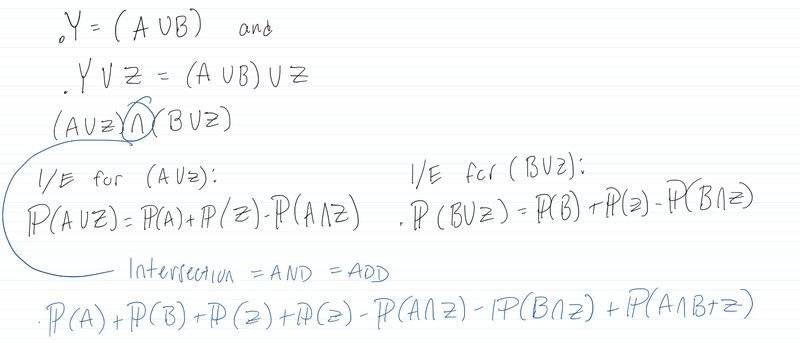 .Y = (A ∪ B) and
.Y ∪ Z = (A ∪ B) ∪ Z
(A ∪ Z) ∩ (B ∪ Z)
I/E for (A ∪ Z):
ℙ(A ∪ Z) = ℙ(A) + ℙ(Z) - ℙ(A ∩ Z)
I/E for (B ∪ Z):
.ℙ(B ∪ Z) = ℙ(B) + ℙ(Z) - ℙ(B ∩ Z)
Intersection = AND = ADD
.ℙ(A) + ℙ(B) + ℙ(Z) + ℙ(Z) - ℙ(A ∩ Z) - ℙ(B ∩ Z) + ℙ(A ∩ B + Z)